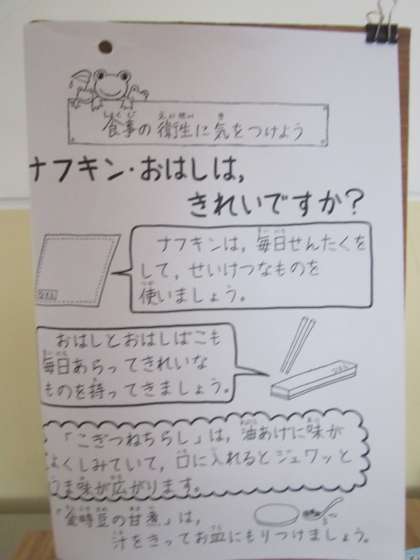 食事の衛生に気をつけよう
ナフキン・おはしは、
きれいですか?
ナフキンは、毎日せんたくを
して、せいけつなものを
使いましょう。
おはしとおはしばこも
毎日あらってきれいな
ものを持ってきましょう。
「こぎつねちらし」は、油あげに味が
よくしみていて、口に入れるとジュワッと
うま味が広がります。
「金時豆の甘煮」は、
汁をきってお皿にもりつけましょう。